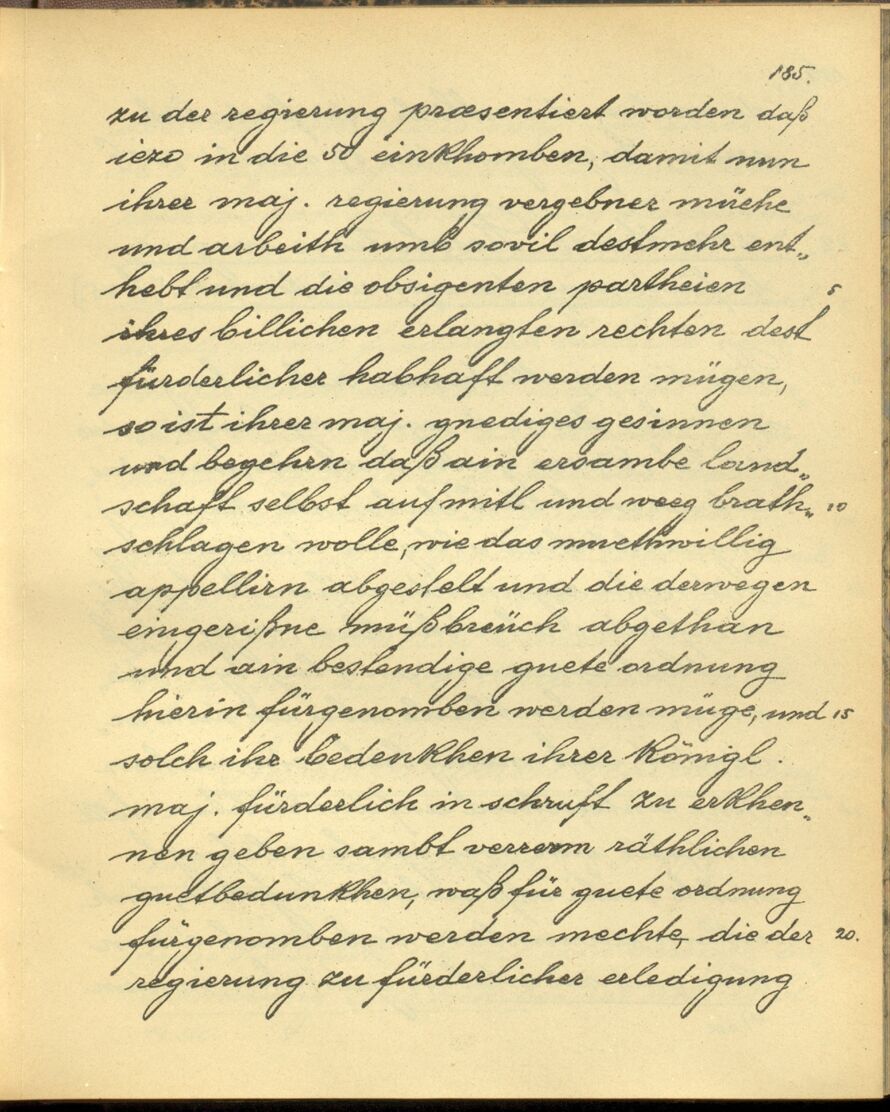 185.
zu der regierung præsentiert worden daß
iezo in die 50 einkhomben, damit nun
ihrer maj. regierung vergebner müehe
und arbeith umb sovil destmehr ent„
hebt und die obsigenten partheien 5
ihres billichen erlangten rechten dest
fürderlicher habhaft werden mügen,
so ist ihrer maj. gnediges gesinnen
und begehrn daß ain ersambe land„
schaft selbst auf mitl und weeg brath„ 10
schlagen wolle, wie das muethwillig
appellirn abgestelt und die derwegen
eingerißne müßbreüch abgethan
und ain bestendige guete ordnung
hierin fürgenomben werden müge, und 15
solch ihr bedenkhen ihrer königl.
maj. fürderlich in schruft zu erkhen„
nen geben sambt verrerm räthlichen
guetbedunkhen, waß für guete ordnung
fürgenomben werden mechte, die der 20.
regierung zu fürderlicher erledigung